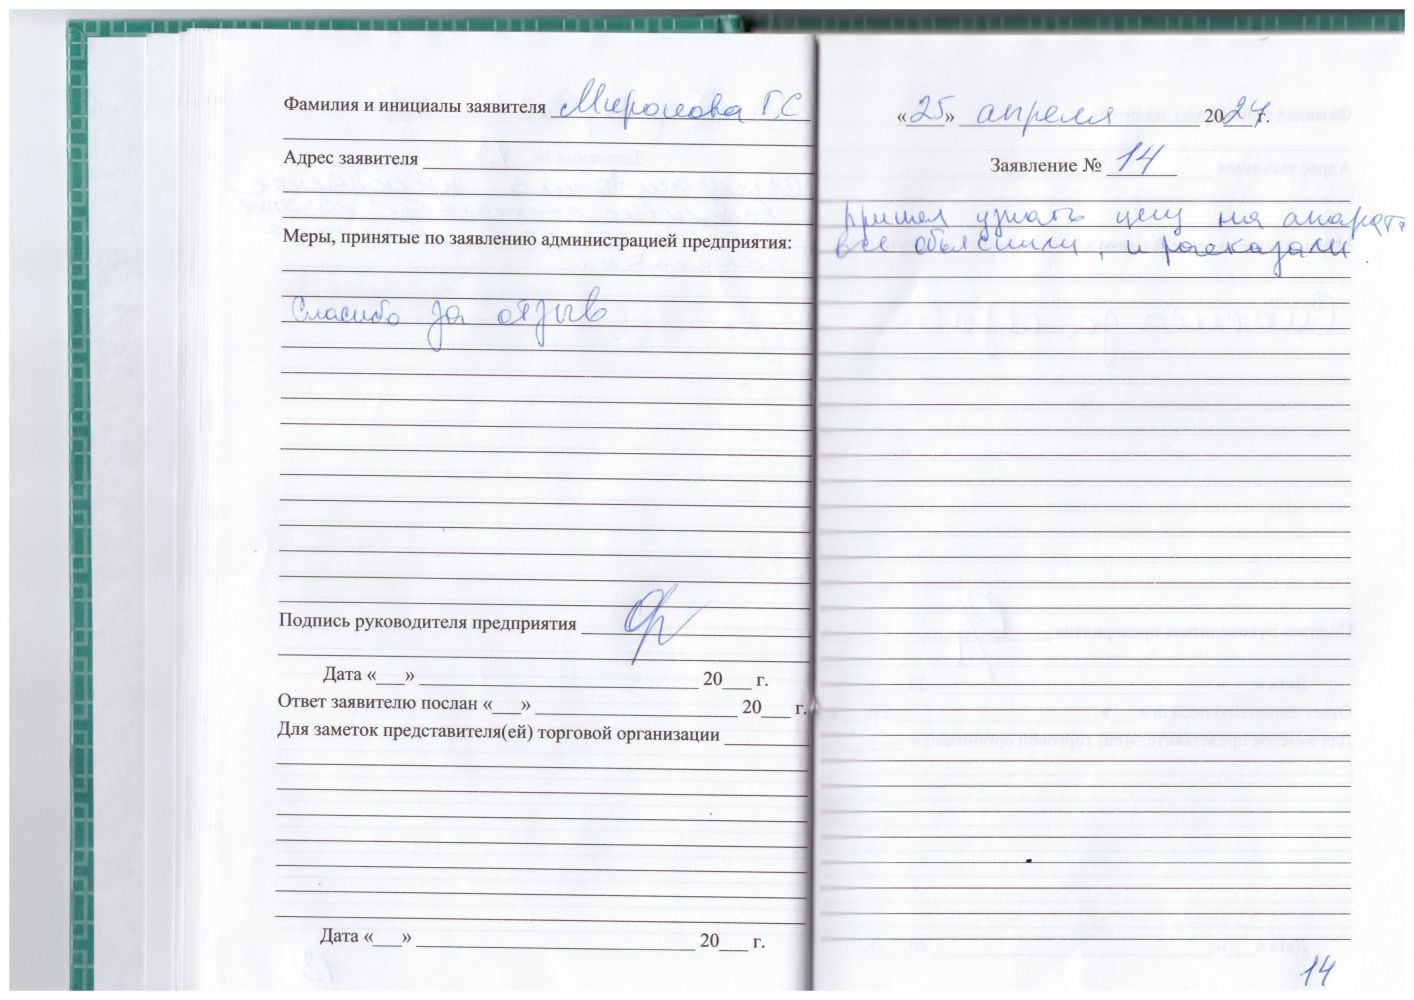 Фамилия и инициалы заявителя Миронова Г.С
Адрес заявителя
Меры, принятые по заявлению администрацией предприятия:
Спасибо за отзыв
Подпись руководителя предприятия
Дата «___» ___ 20___ г.
Ответ заявителю послан «___» ___ 20___ г.
Для заметок представителя(ей) торговой организации
Дата «___» ___ 20___ г.
«25» апреля 2024г.
Заявление № 14
пришел узнать цену на апарат.
все обьяснили, и расказали.
14